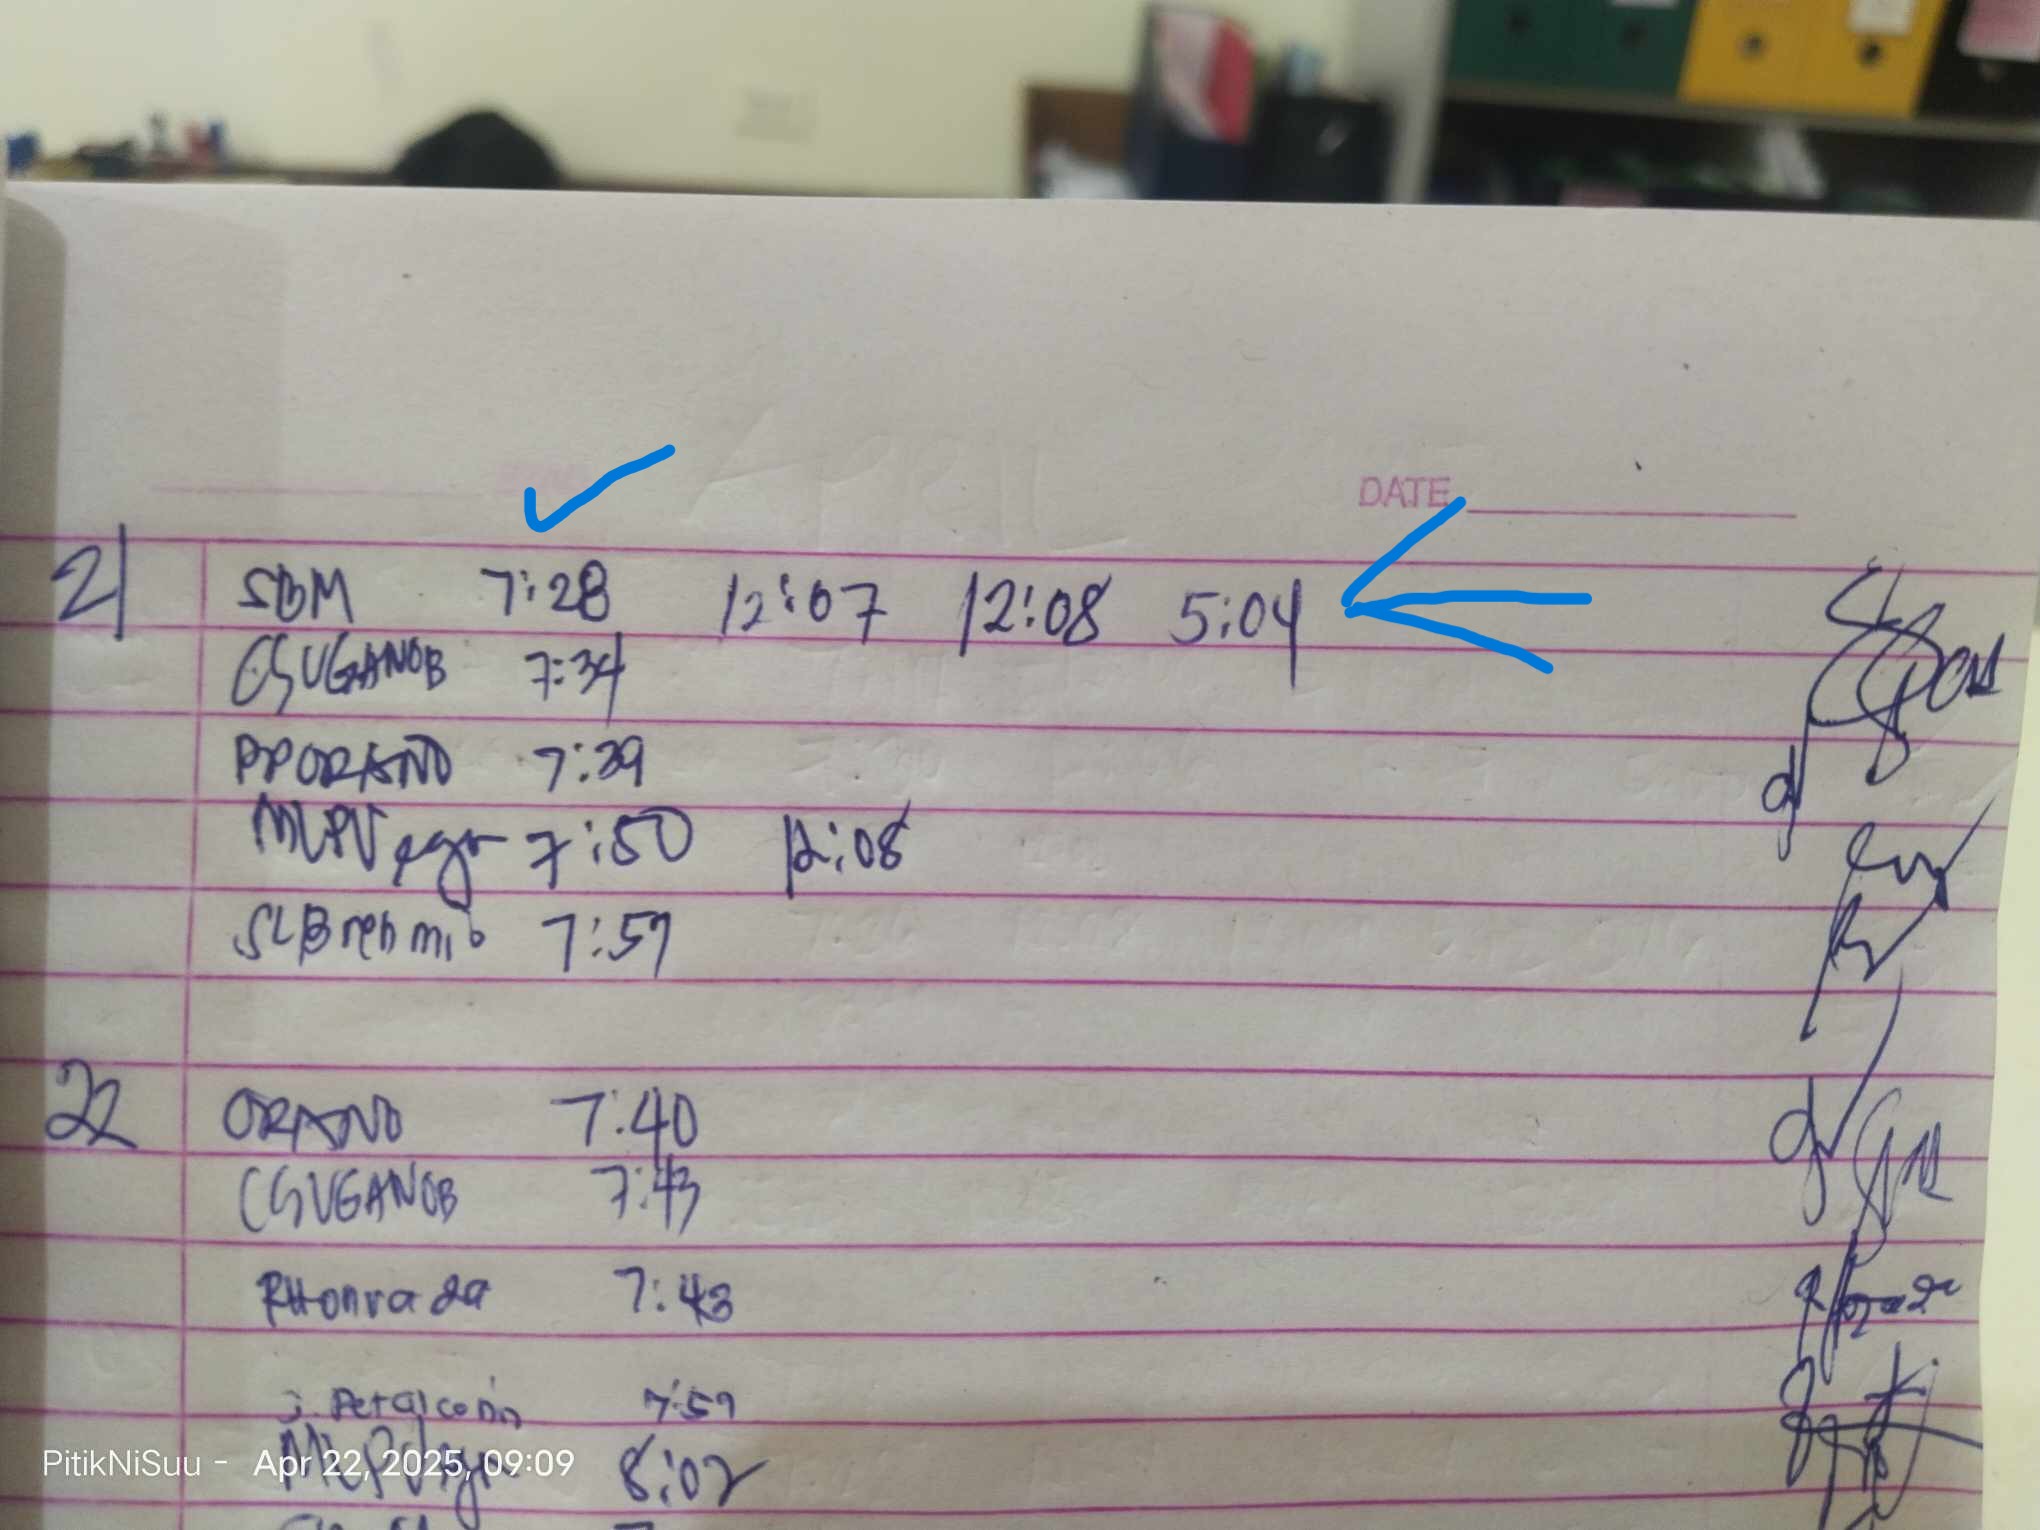 APRIL
DATE
21 SBM 7:28 12:07 12:08 5:04
CSUGANOB 7:34
PPORANO 7:39
MLPV 7:50 12:08
7:57
22 ORANO 7:40
CSUGANOB 7:43
RHonrada 7:43
J. Petalcorin 7:57
8:02
PitikNiSuu - Apr 22, 2025, 09:09